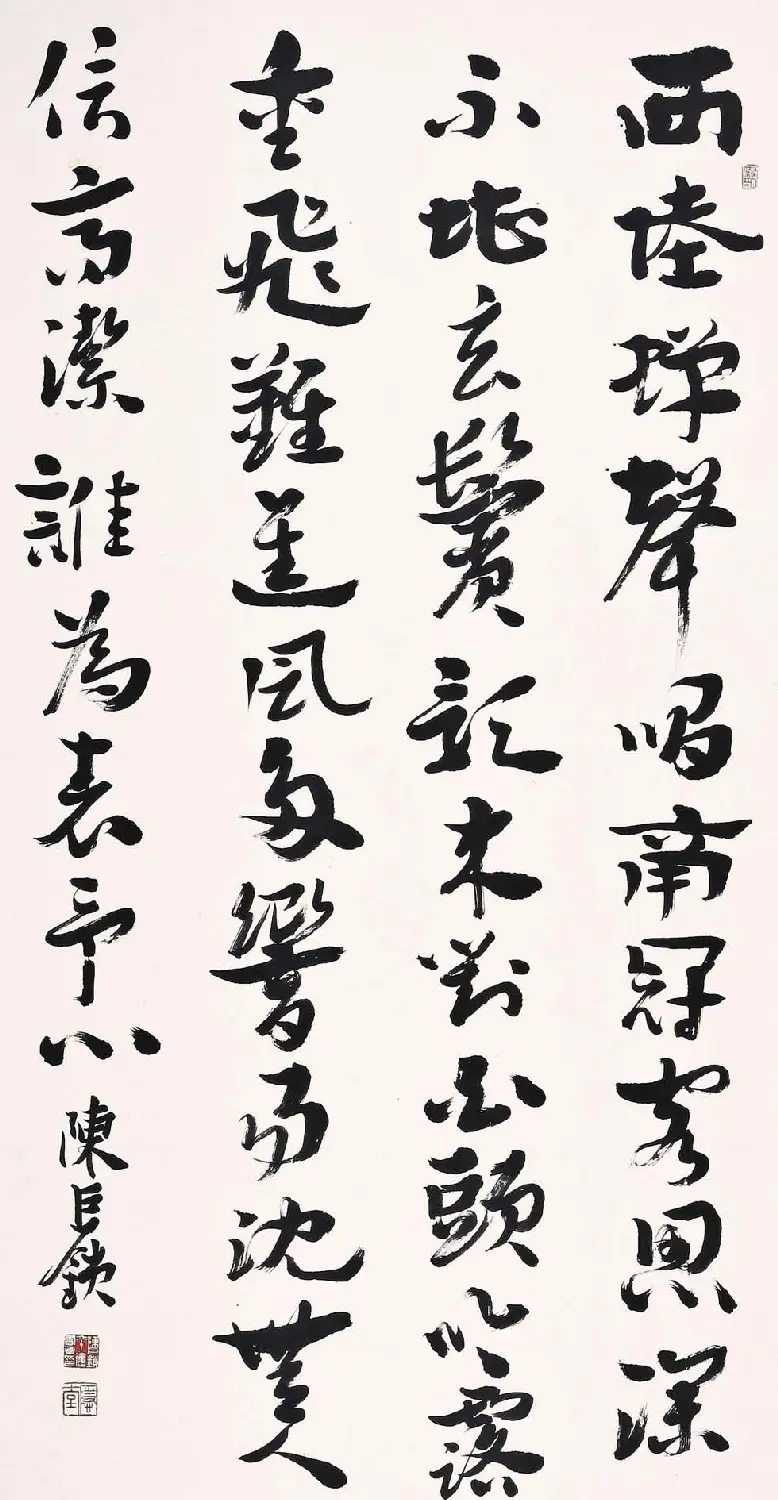 西陸蟬聲唱南冠客思深
不堪玄鬢影来對白頭吟露
重飛難進風多響易沈無人
信高潔誰為表予心 陳巨鎖